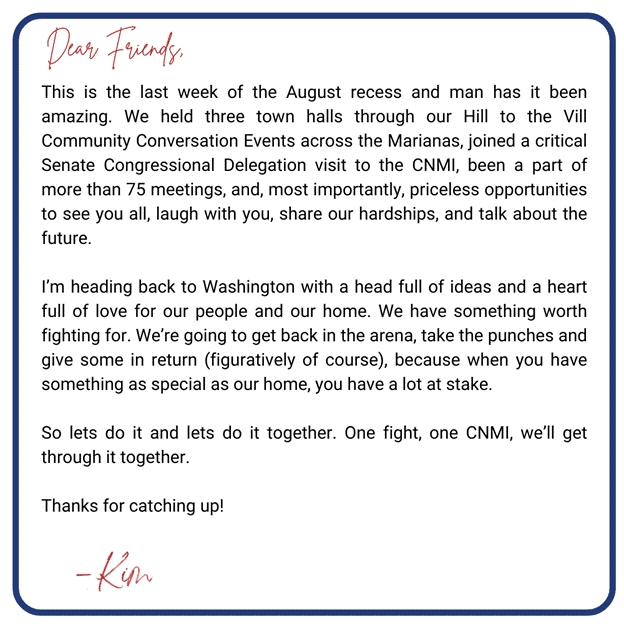 Dear Friends,
This is the last week of the August recess and man has it been
amazing. We held three town halls through our Hill to the Vill
Community Conversation Events across the Marianas, joined a critical
Senate Congressional Delegation visit to the CNMI, been a part of
more than 75 meetings, and, most importantly, priceless opportunities
to see you all, laugh with you, share our hardships, and talk about the
future.
I’m heading back to Washington with a head full of ideas and a heart
full of love for our people and our home. We have something worth
fighting for. We’re going to get back in the arena, take the punches and
give some in return (figuratively of course), because when you have
something as special as our home, you have a lot at stake.
So lets do it and lets do it together. One fight, one CNMI, we’ll get
through it together.
Thanks for catching up!
-Kim